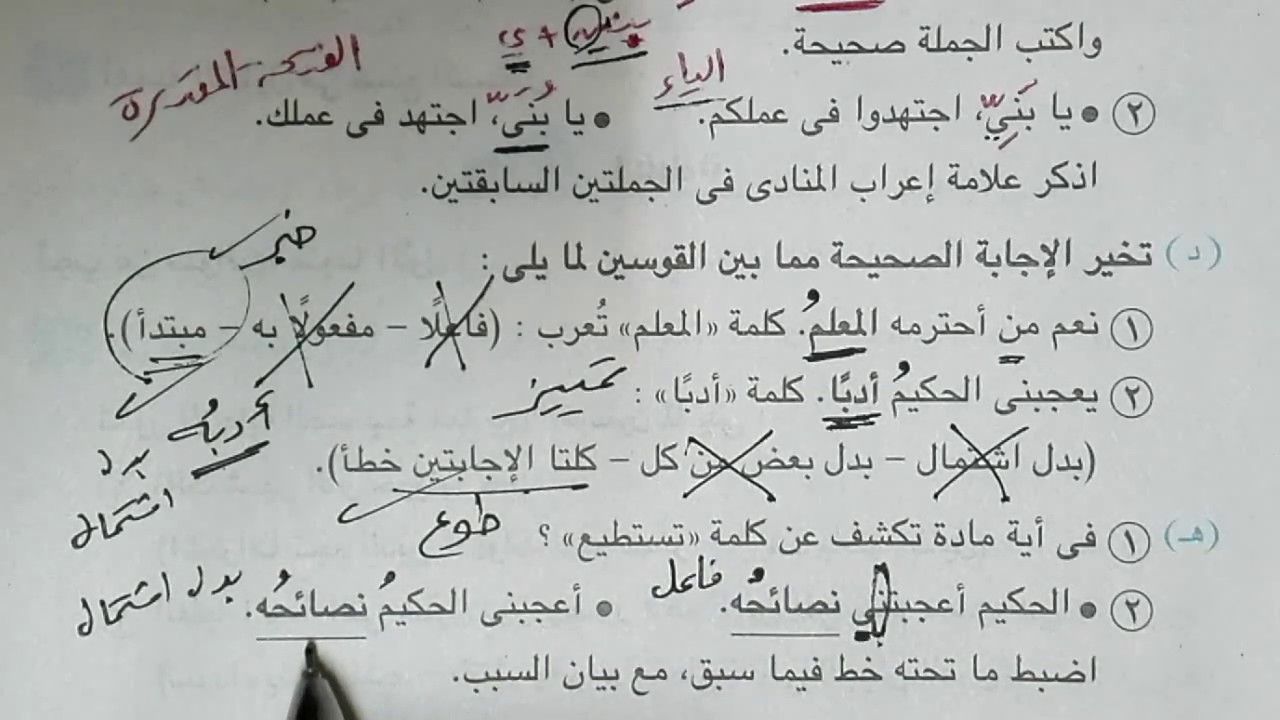 واكتب الجملة صحيحة.
ي +
الياء
الفتحة المقدرة
٢ • يا بَنِيَّ، اجتهدوا فى عملكم. • يا بُنَىَّ، اجتهد فى عملك.
اذكر علامة إعراب المنادى فى الجملتين السابقتين.
(د) تخير الإجابة الصحيحة مما بين القوسين لما يلى :
خبر
١ نعم من أحترمه المعلمُ. كلمة «المعلم» تُعرب : (فاعلًا – مفعولًا به – مبتدأ).
٢ يعجبنى الحكيمُ أدبًا. كلمة «أدبًا» :
تمييز
أدبُه
بدل
اشتمال
(بدل اشتمال – بدل بعض من كل – كلتا الإجابتين خطأ).
(هـ) ١ فى أية مادة تكشف عن كلمة «تستطيع» ؟
طوع
٢ • الحكيم أعجبتنى نصائحُه. • أعجبنى الحكيمُ نصائحُه.
فاعل
بدل اشتمال
اضبط ما تحته خط فيما سبق، مع بيان السبب.